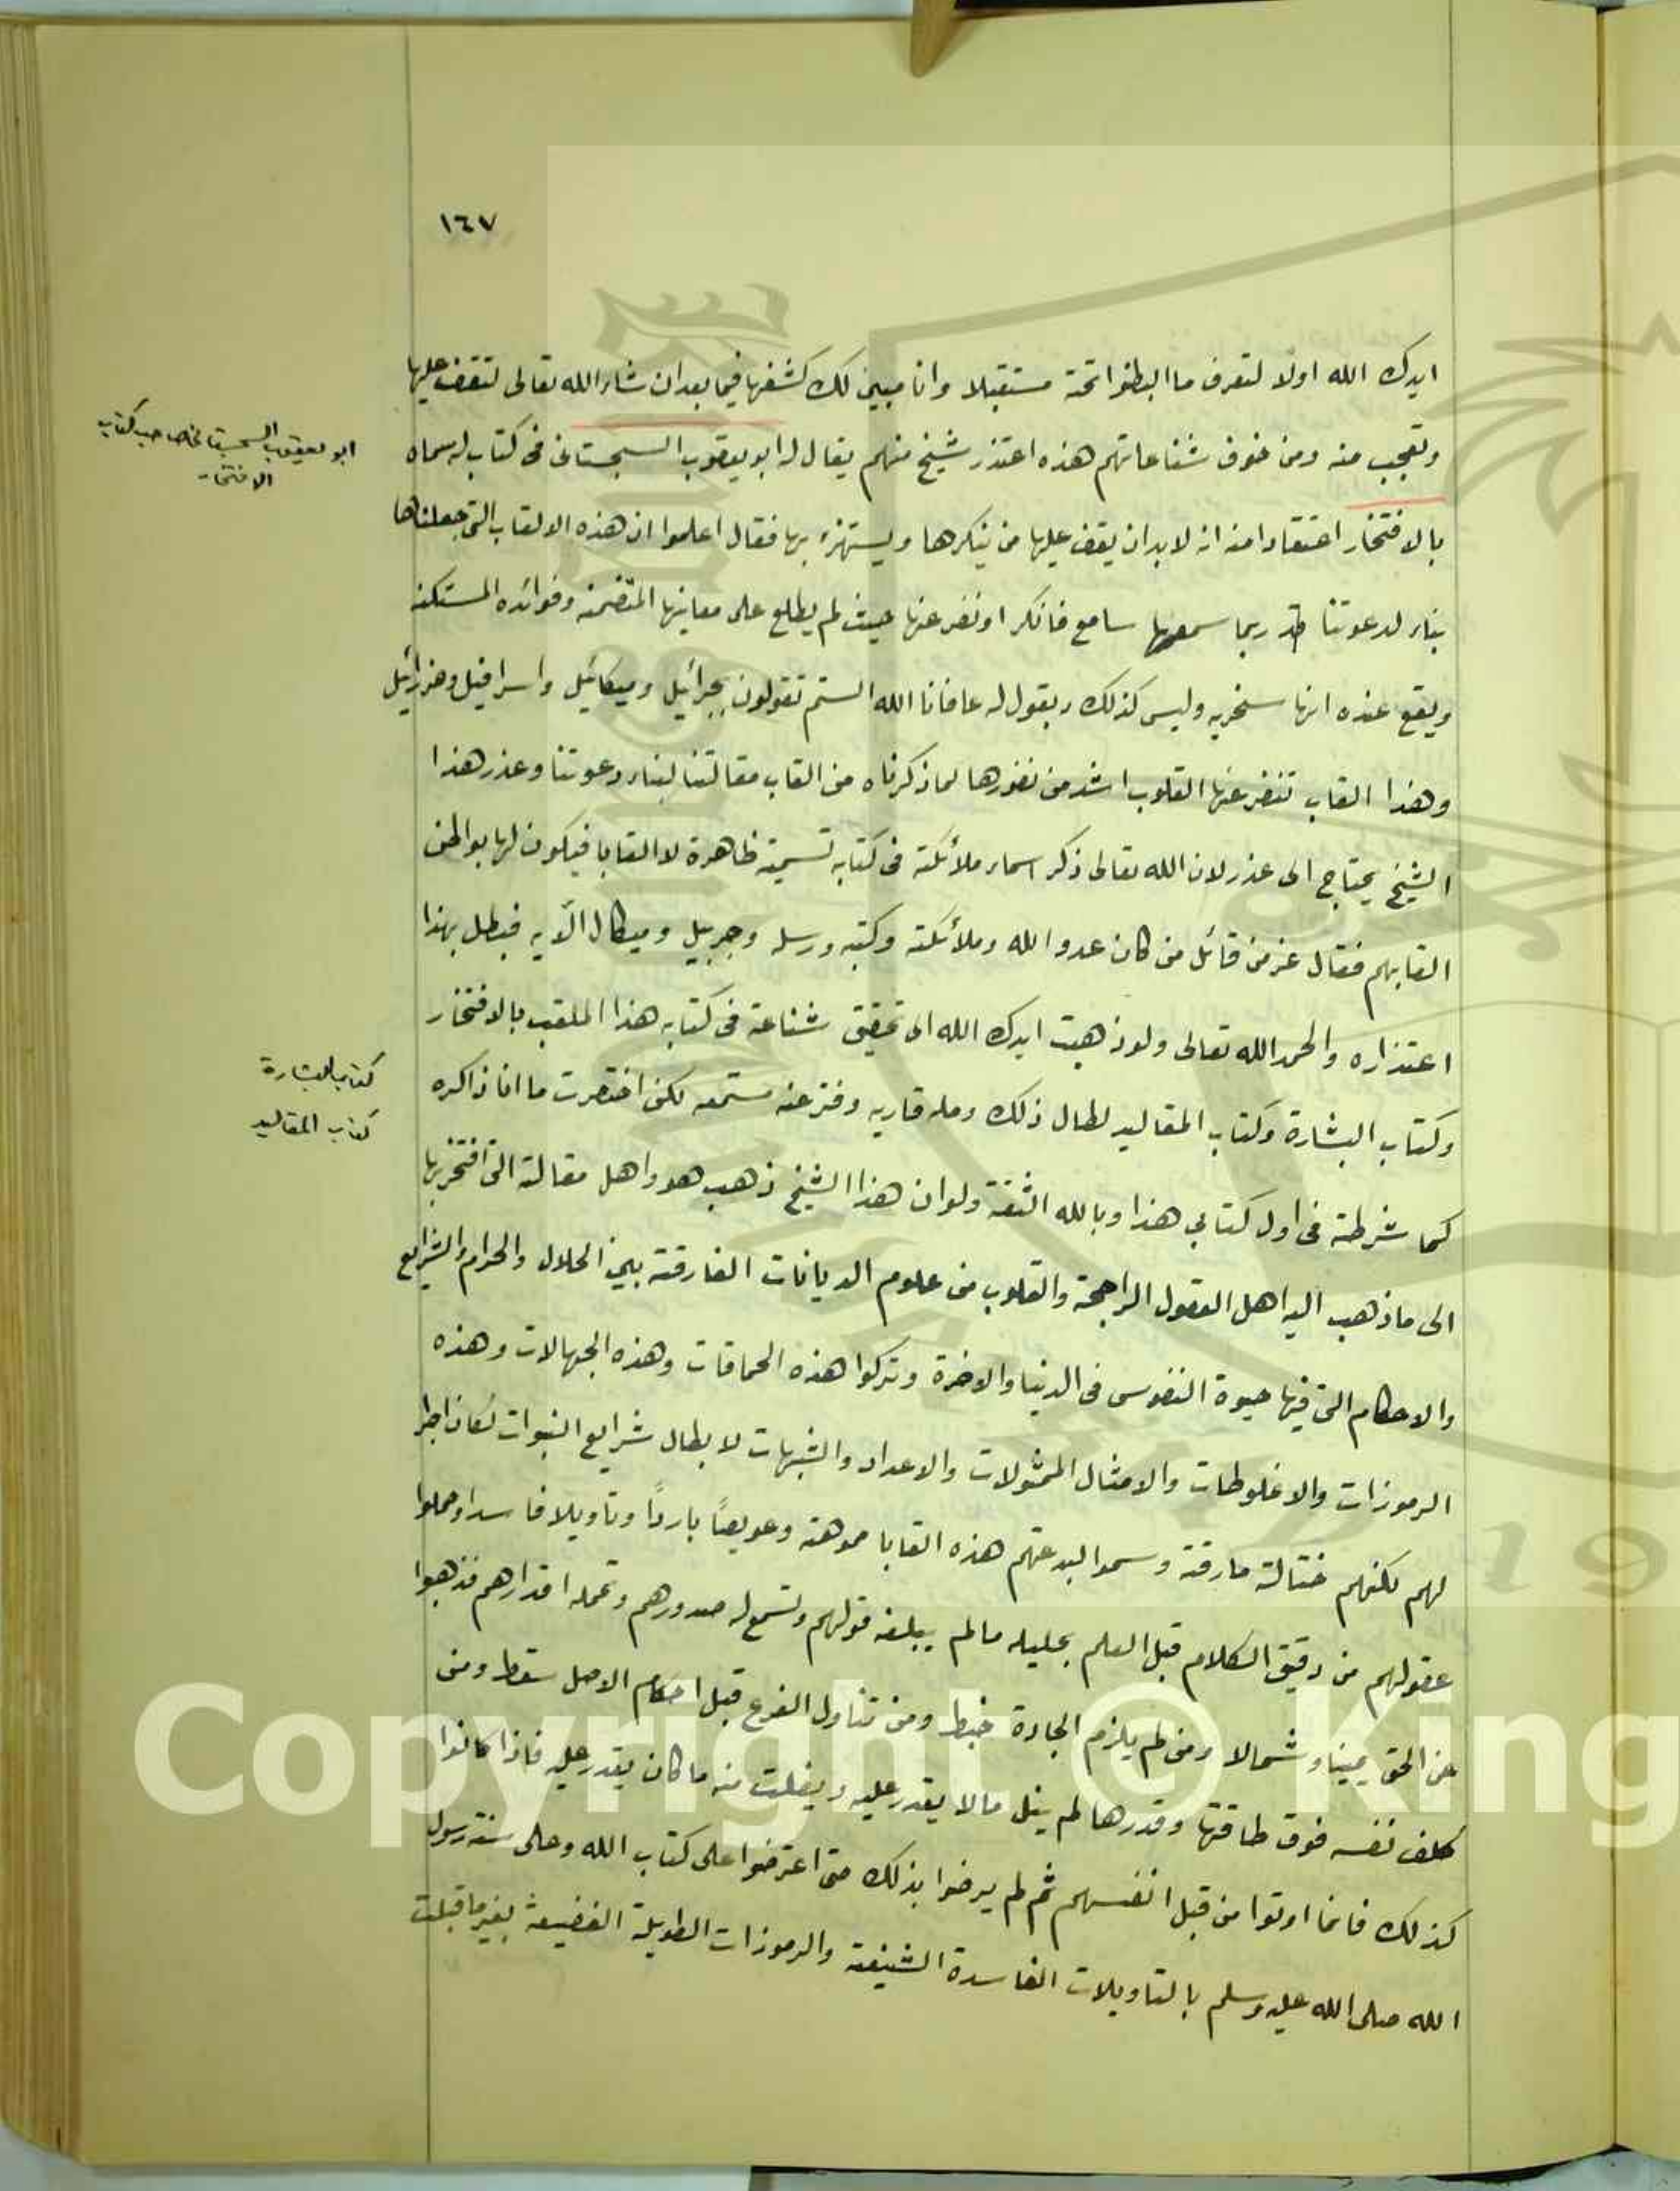 ١٦٧
ايدك الله اولا لتعرف ما ابطنوا تحته مستقبلا وانا مبين لك كشفها فيما بعد ان شاء الله تعالى لتقف عليها
وتعجب منه ومن خوف شناعاتهم هذه اعتذر شيخ منهم يقال له ابو يعقوب السجستانى فى كتاب له سماه
ابو يعقوب السجستانى صاحب كتاب
الافتخار
بالافتخار اعتقادا منه انه لابد ان يقف عليها من ينكرها ويستهزء بها فقال اعلموا ان هذه الالقاب التى جعلناها
بناء لدعوتنا قد ربما سمعها سامع فانكر او نفر عنها حيث لم يطلع على معانيها المتضمنه وفوائده المستكنه
ويقع عنده انها سخريه وليس كذلك ويقول له عافانا الله الستم تقولون بجبرائيل وميكائيل واسرافيل وعزرائيل
وهذا القاب تنفر عنها القلوب اشد من نفورها لما ذكرناه من القاب مقالتنا لبناء دعوتنا وعذر هذا
الشيخ يحتاج الى عذر لان الله تعالى ذكر اسماء ملائكته فى كتابه تسمية ظاهرة لا القابا فيكون لها بواطن
القابهم فقال عز من قائل من كان عدوا لله وملائكته وكتبه ورسله وجبريل وميكال الآيه فبطل بهذا
اعتذاره والحمد لله تعالى ولو ذهبت ايدك الله الى تحقيق شناعة فى كتابه هذا الملقب بالافتخار
وكتاب البشارة وكتاب المقاليد لطال ذلك ومله قاريه وفتر عنه مستمعه لكن اختصرت ما انا ذاكره
كتاب البشارة
كتاب المقاليد
كما شرطته فى اول كتابي هذا وبالله الثقة ولو ان هذا الشيخ ذهب هو واهل مقالة التى افتخر بها
الى ما ذهب اليه اهل العقول الراجحة والقلوب من علوم الديانات الفارقة بين الحلال والحرام والشرايع
والاحكام التى فيها حيوة النفوس فى الدنيا والاخرة وتركوا هذه الحماقات وهذه الجهالات وهذه
الرموزات والاغلوطات والامثال الممثولات والاعداد والشبهات لابطال شرايع النبوات لكان اجرا
لهم لكنهم ختالة مارقة وسموا لبدعتهم هذه القابا مموهة وعويصًا باردًا وتاويلا فاسدا وحملوا
عقولهم من دقيق الكلام قبل العلم بجليله مالم يبلغه قولهم وتسع له صدورهم وتحمله اقدارهم فذهبوا
عن الحق يمينا وشمالا ومن لم يلزم الجادة خبط ومن تناول الفرع قبل احكام الاصل سقط ومن
كلف نفسه فوق طاقتها وقدرها لم ينل مالا يقدر عليه ويفلت منه ما كان يقدر عليه فاذا كانوا
كذلك فانما اوتوا من قبل انفسهم ثم لم يرضوا بذلك حتى اعترضوا على كتاب الله وعلى سنة رسول
الله صلى الله عليه وسلم بالتاويلات الفاسدة الشنيعة والرموزات الطويلة الفضيعة بغير ما قبلت
Copyright © King